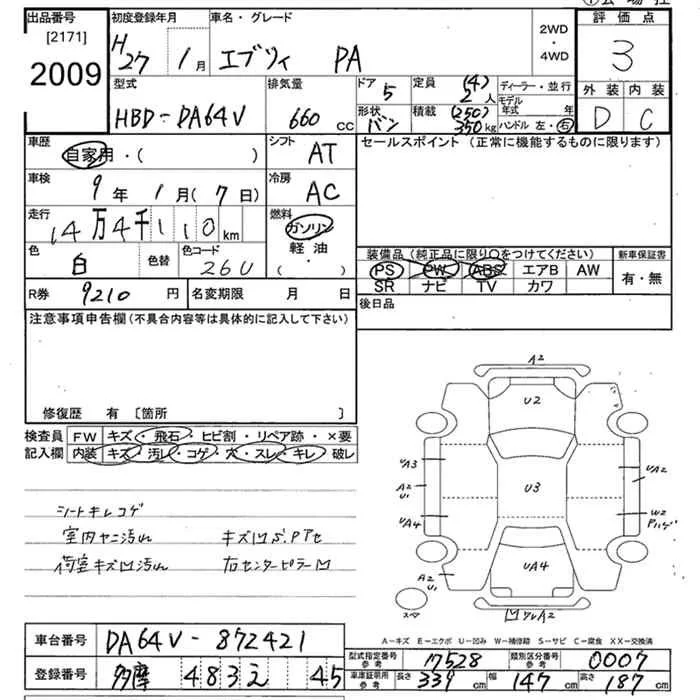 出品番号
[2171]
2009
初度登録年月
H27年 1月
車名・グレード
エブリィ PA
2WD
・
4WD
評価点
3
外装 内装
D C
型式
HBD-DA64V
排気量
660 cc
ドア
5
定員 (4)
2人
形状
バン
積載 (250)
350kg
ディーラー・並行
モデル年式 年
ハンドル 左・右
車歴
自家用・( )
シフト AT
車検
9年 1月(7日)
冷房 AC
走行
14万4千110km
燃料
ガソリン
軽油
・
( )
色
白
色替
色コード
26U
R券 9210円
名変期限 月 日
セールスポイント(正常に機能するものに限ります)
装備品(純正品に限り○をつけてください)
PS PW ABS エアB AW
SR ナビ TV カワ
新車保証書
有・無
後日品
注意事項申告欄(不具合内容等は具体的に記入して下さい)
修復歴 有 〔箇所 〕
検査員記入欄
FW キズ・飛石・ヒビ割・リペア跡・×要
内装 キズ・汚レ・コゲ・穴・スレ・キレ・破レ
シートキレコゲ
室内ヤニ汚れ キズ凹S.Pアセ
荷室キズ凹汚れ 右センターピラー凹
A2
U2
UA3
A2
U1
UA4
U3
UA2
W2
Pハゲ
UA4
A2
U1
スペ
凹ワレA2
A-キズ E-エクボ U-凹み W-補修跡 S-サビ C-腐食 XX-交換済
車台番号 DA64V-872421
登録番号 多摩 483え 45
型式指定番号
参考
17528
類別区分番号
参考
0007
車庫証明用
参考
長さ 339cm 幅 147cm 高さ 187cm